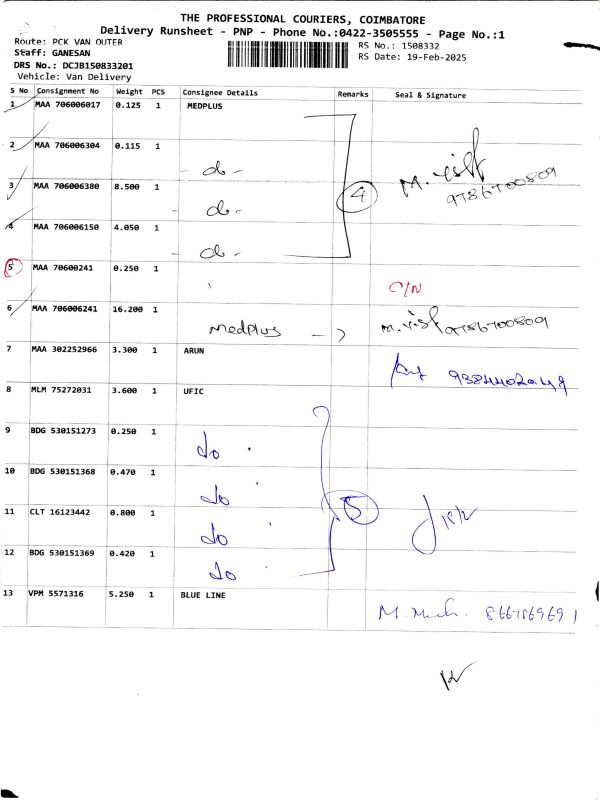 THE PROFESSIONAL COURIERS, COIMBATORE
Delivery Runsheet - PNP - Phone No.:0422-3505555 - Page No.:1
Route: PCK VAN OUTER
Staff: GANESAN
DRS No.: DCJB150833201
Vehicle: Van Delivery
RS No.: 1508332
RS Date: 19-Feb-2025
S No Consignment No Weight PCS Consignee Details Remarks Seal & Signature
1 MAA 706006017 0.125 1 MEDPLUS
2 MAA 706006304 0.115 1 - do -
3 MAA 706006380 8.500 1 - do - 4 9786700809
4 MAA 706006150 4.050 1 - do -
5 MAA 70600241 0.250 1 C/N
6 MAA 706006241 16.200 1 Medplus 9786700809
7 MAA 302252966 3.300 1 ARUN
8 MLM 75272031 3.600 1 UFIC
9 BDG 530151273 0.250 1 do
10 BDG 530151368 0.470 1 do
11 CLT 16123442 0.800 1 do 5
12 BDG 530151369 0.420 1 do
13 VPM 5571316 5.250 1 BLUE LINE